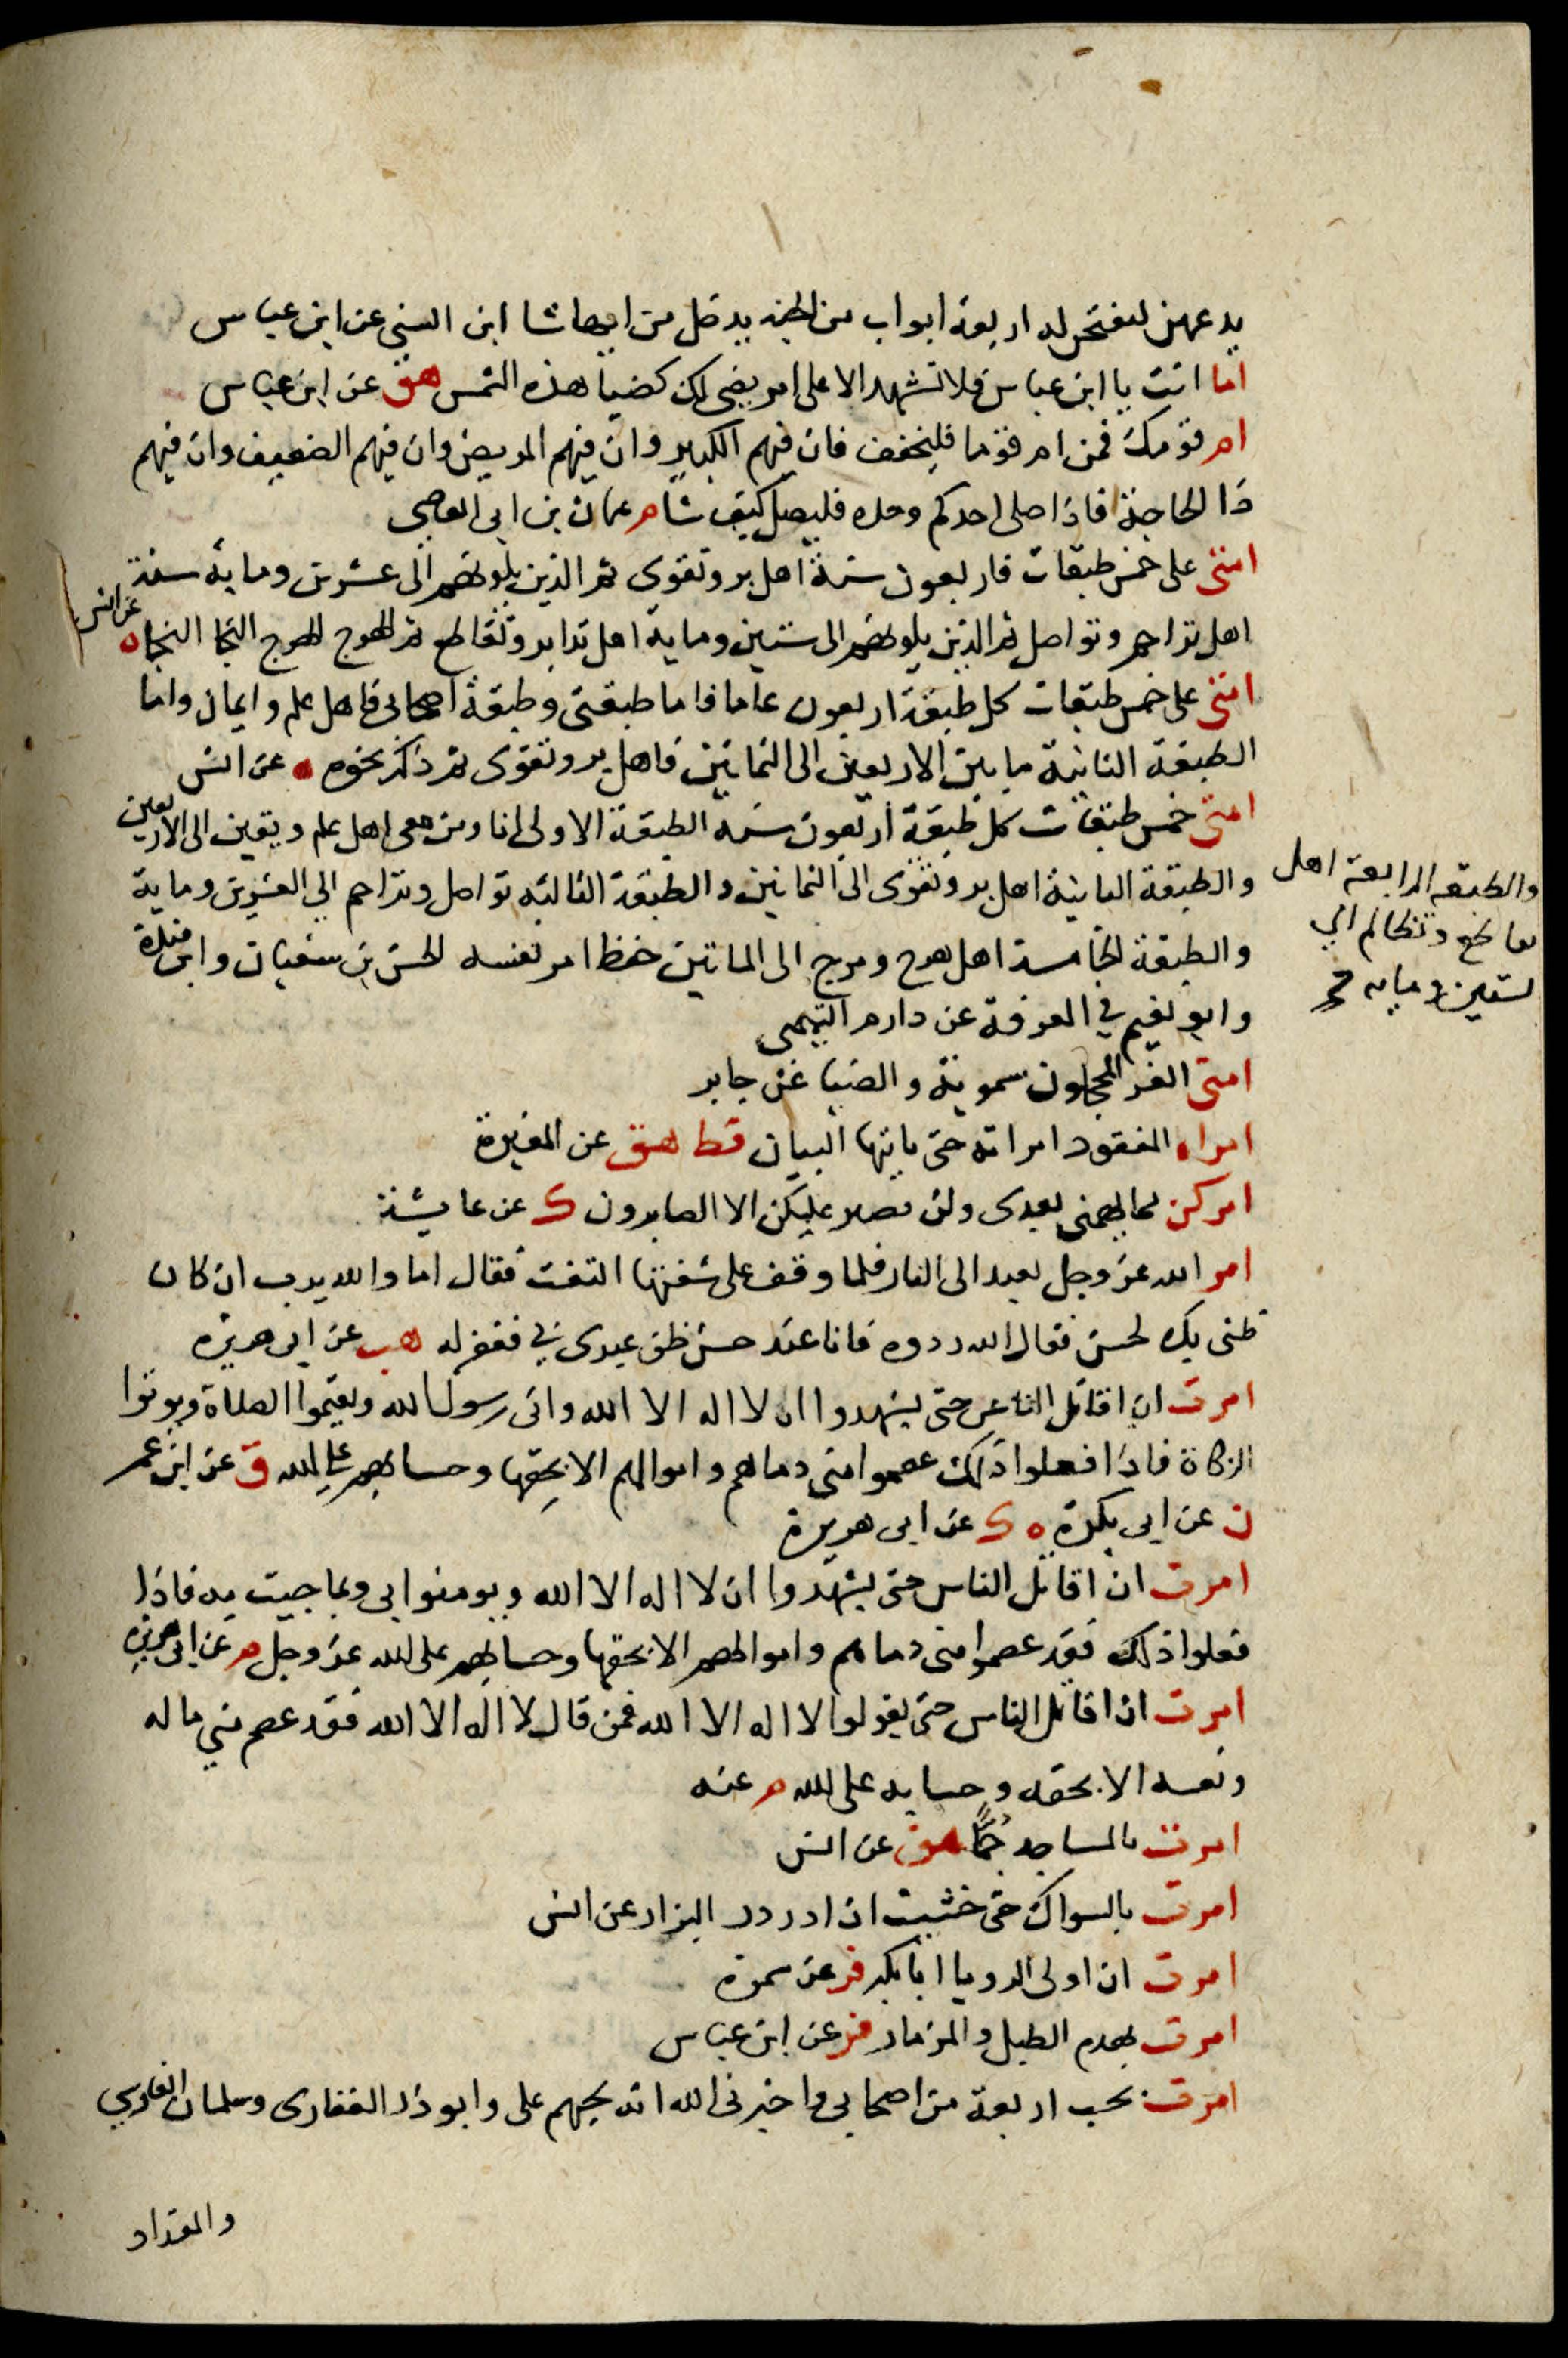 يدعهن ليفتحن له اربعة ابواب من الجنه يدخل من ايها شا ابن السنى عن ابن عباس
اما انت يا ابن عباس فلا تشهد الا على امر يضى لك كضيا هذه الشمس هق عن ابن عباس
ام قومك فمن ام قوما فليخفف فان فيهم الكبير وان فيهم المريض وان فيهم الضعيف وان فيهم
ذا الحاجة فاذا صلى احدكم وحده فليصل كيف شا م عثمان بن ابى العاصى
امتى على خمس طبقات فاربعون سنة اهل بر وتقوى ثم الذين يلونهم الى عشرين وماية سنة
اهل تراحم وتواصل ثم الذين يلونهم الى ستين وماية اهل تدابر وتقاطع ثم الهرج الهرج النجا النجا ه عن انس
امتى على خمس طبقات كل طبقة اربعون عاما فاما طبقتى وطبقة اصحابى فاهل علم وايمان واما
الطبقة الثانية مابين الاربعين الى الثمانين فاهل بر وتقوى ثم ذكر نحوه ه عن انس
امتى خمس طبقات كل طبقة اربعون سنه الطبقة الاولى انا ومن معى اهل علم ويقين الى الاربعين
والطبقة الثانية اهل بر وتقوى الى الثمانين والطبقة الثالثه تواصل وتراحم الى العشرين وماية
والطبقه الرابعة اهل
تقاطع وتظالم الى
لستين ومايه صح
والطبقة الخامسة اهل هرج ومرج الى الماتين حفظ امر نفسه الحسن بن سفيان وابن منده
وابو نعيم في المعرفة عن دارم التيمى
امتى الغر المحجلون سموية والضيا عن جابر
امراه المفقود امراته حتى ياتيها البيان قط هق عن المغيرة
امركن مما يهمنى بعدى ولن يصبر عليكن الا الصابرون ك عن عايشة
امر الله عز وجل بعبد الى النار فلما وقف على شفتها التفت فقال اما والله يرب ان كان
ظنى بك لحسن فقال الله ردوه فانا عند حسن ظن عبدى بي فغفر له هب عن ابى هريره
امرت ان اقاتل الناس حتى يشهدوا ان لا اله الا الله وانى رسول الله ويقيموا الصلاة ويوتوا
الزكاة فاذا فعلوا ذلك عصموا منى دماهم واموالهم الا بحقها وحسابهم على الله ق عن ابن عمر
ن عن ابى بكرة ه ك عن ابى هريرة
امرت ان اقاتل الناس حتى يشهدوا ان لا اله الا الله ويومنوا بى وبما جيت به فاذا
فعلوا ذلك فقد عصموا منى دماهم واموالهم الا بحقها وحسابهم على الله عز وجل م عن ابى هريره
امرت ان اقاتل الناس حتى يقولوا لا اله الا الله فمن قال لا اله الا الله فقد عصم مني ماله
ونفسه الا بحقه وحسابه على الله م عنه
امرت بالمساجد جمًّا هق عن انس
امرت بالسواك حتى خشيت ان ادردر البزار عن انس
امرت ان اولى الرويا ابا بكر فر عن سمرة
امرت بهدم الطبل والمزمار فر عن ابن عباس
امرت بحب اربعة من اصحابى واخبرنى الله انه يحبهم على وابو ذر الغفارى وسلمان الفارسي
والمقداد